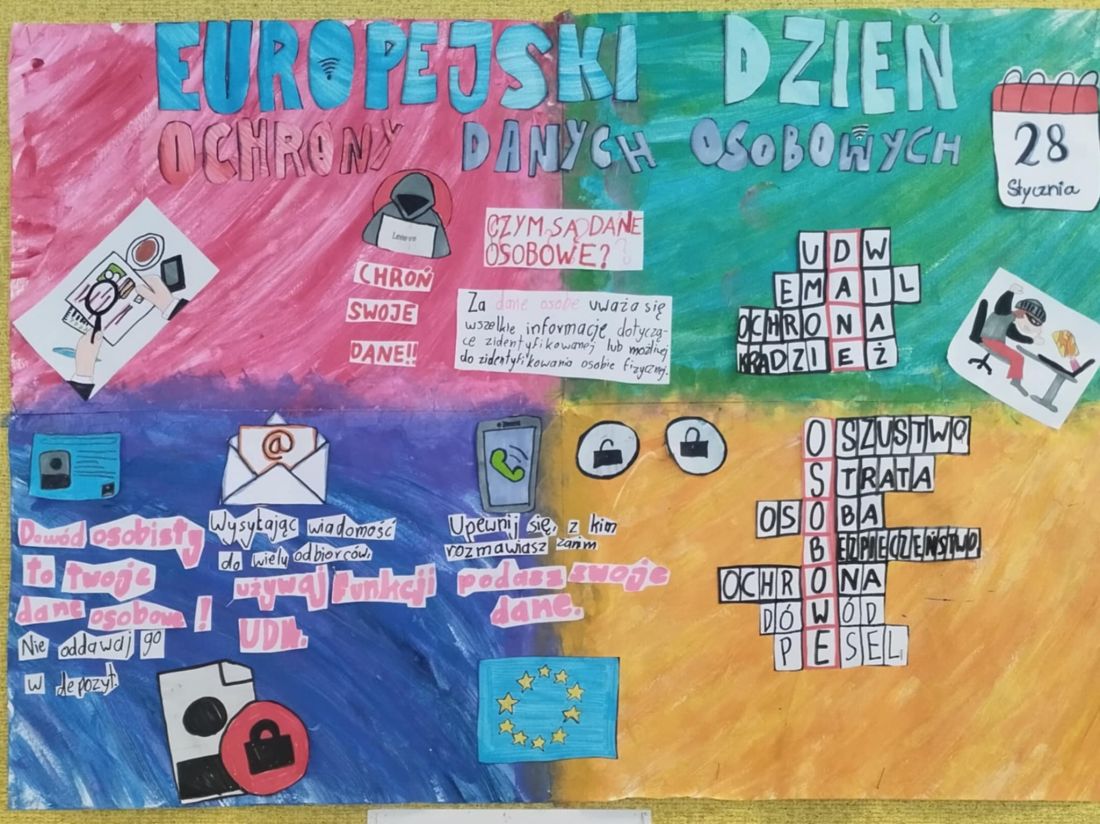 EUROPEJSKI DZIEŃ
OCHRONY DANYCH OSOBOWYCH
28
Stycznia
Lenovo
CHROŃ
SWOJE
DANE!!
CZYM SĄ DANE
OSOBOWE?
Za dane osobe uważa się
wszelkie informacje dotyczą-
ce zidentyfikowanej lub możliwej
do zidentyfikowania osobie fizycznej.
UDW
EMAIL
OCHRONA
KRADZIEŻ
@
Dowód osobisty
to twoje
dane osobowe!
Nie oddawaj go
w depozyt.
Wysyłając wiadomość
do wielu odbiorców,
używaj funkcji
UDW.
Upewnij się, z kim
rozmawiasz zanim
podasz swoje
dane.
OSZUSTWO
STRATA
OSOBA
BEZPIECZEŃSTWO
OCHRONA
DÓWÓD
PESEL